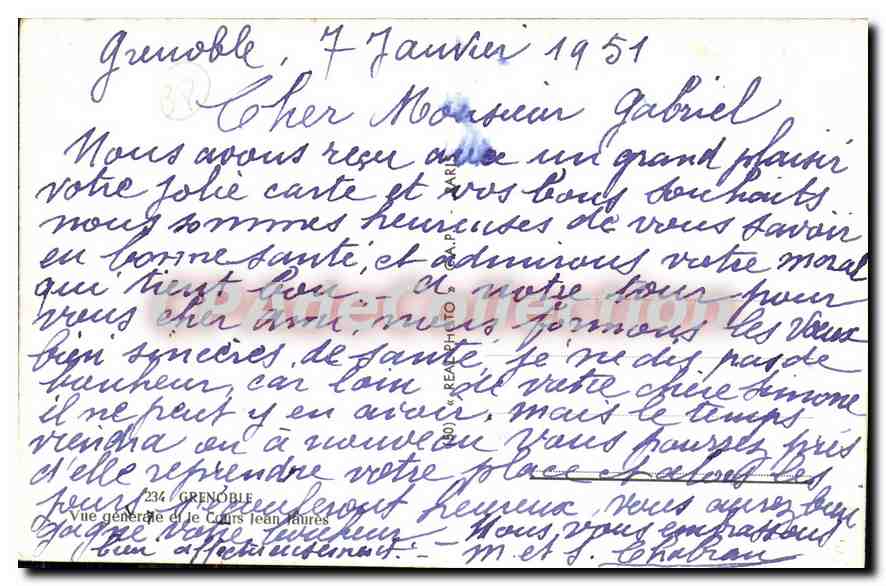 Grenoble, 7 Janvier 1951
38
Cher Monsieur Gabriel
Nous avons reçu avec un grand plaisir
votre jolie carte et vos bons souhaits
nous sommes heureuses de vous savoir
en bonne santé, et admirons votre moral
qui tient bon - à notre tour pour
vous cher ami, nous formons les vœux
bien sincères, de santé, je ne dis pas de
bonheur, car loin de votre chère Simone
il ne peut y en avoir, mais le temps
viendra ou à nouveau vous pourrez près
d'elle reprendre votre place et alors les
jours couleront heureux, vous aurez bien
gagné votre bonheur - Nous vous embrassons
bien affectueusement. - M et S. Chabran
234 GRENOBLE
Vue générale et le Cours Jean Jaurès
(80) « REAL-PHOTO » C.A.P. - PARIS
CPADeCollection